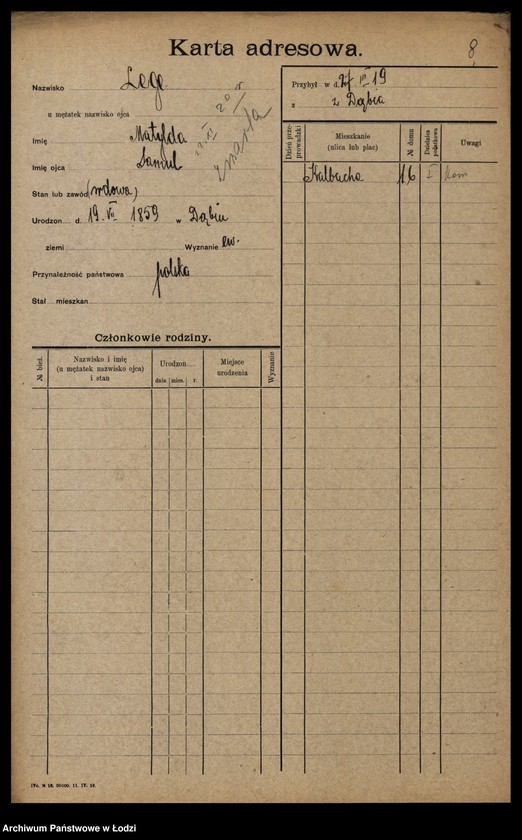 Karta adresowa.
8
Nazwisko Lege
u mężatek nazwisko ojca
Imię Matylda
Imię ojca Samul
Stan lub zawód (wdowa)
Urodzon d. 19. VII 1859 w Dąbiu
ziemi Wyznanie ew.
Przynależność państwowa polska
Stał mieszkan
20 r
zmarła
Przybył w d. 27 III 19
z z Dąbia
Dzień przeprowadzki
Mieszkanie (ulica lub plac)
№ domu
Dzielnica podatkowa
Uwagi
16 I
Członkowie rodziny.
№ bież.
Nazwisko i imię
(u mężatek nazwisko ojca)
i stan
Urodzon
dnia mies. r.
Miejsce
urodzenia
Wyznanie
Archiwum Państwowe w Łodzi